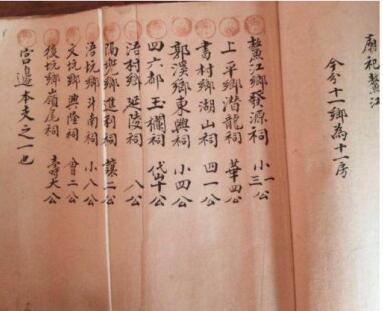 廟祀鰲江
今分十一鄉為十一房
鰲江鄉發源祠 小三一公
上平鄉潛龍祠 華四公
書村鄉湖山祠 四一公
郭溪鄉東興祠 小四公
四六都玉欄祠 岱十公
浯村鄉延陵祠 八公
鄉進利祠 讓二公
浯坑鄉斗南祠 小八公
文坑鄉興隆祠 會二公
後坑鄉嶺尾祠 壽大公
宫邊本支之一也